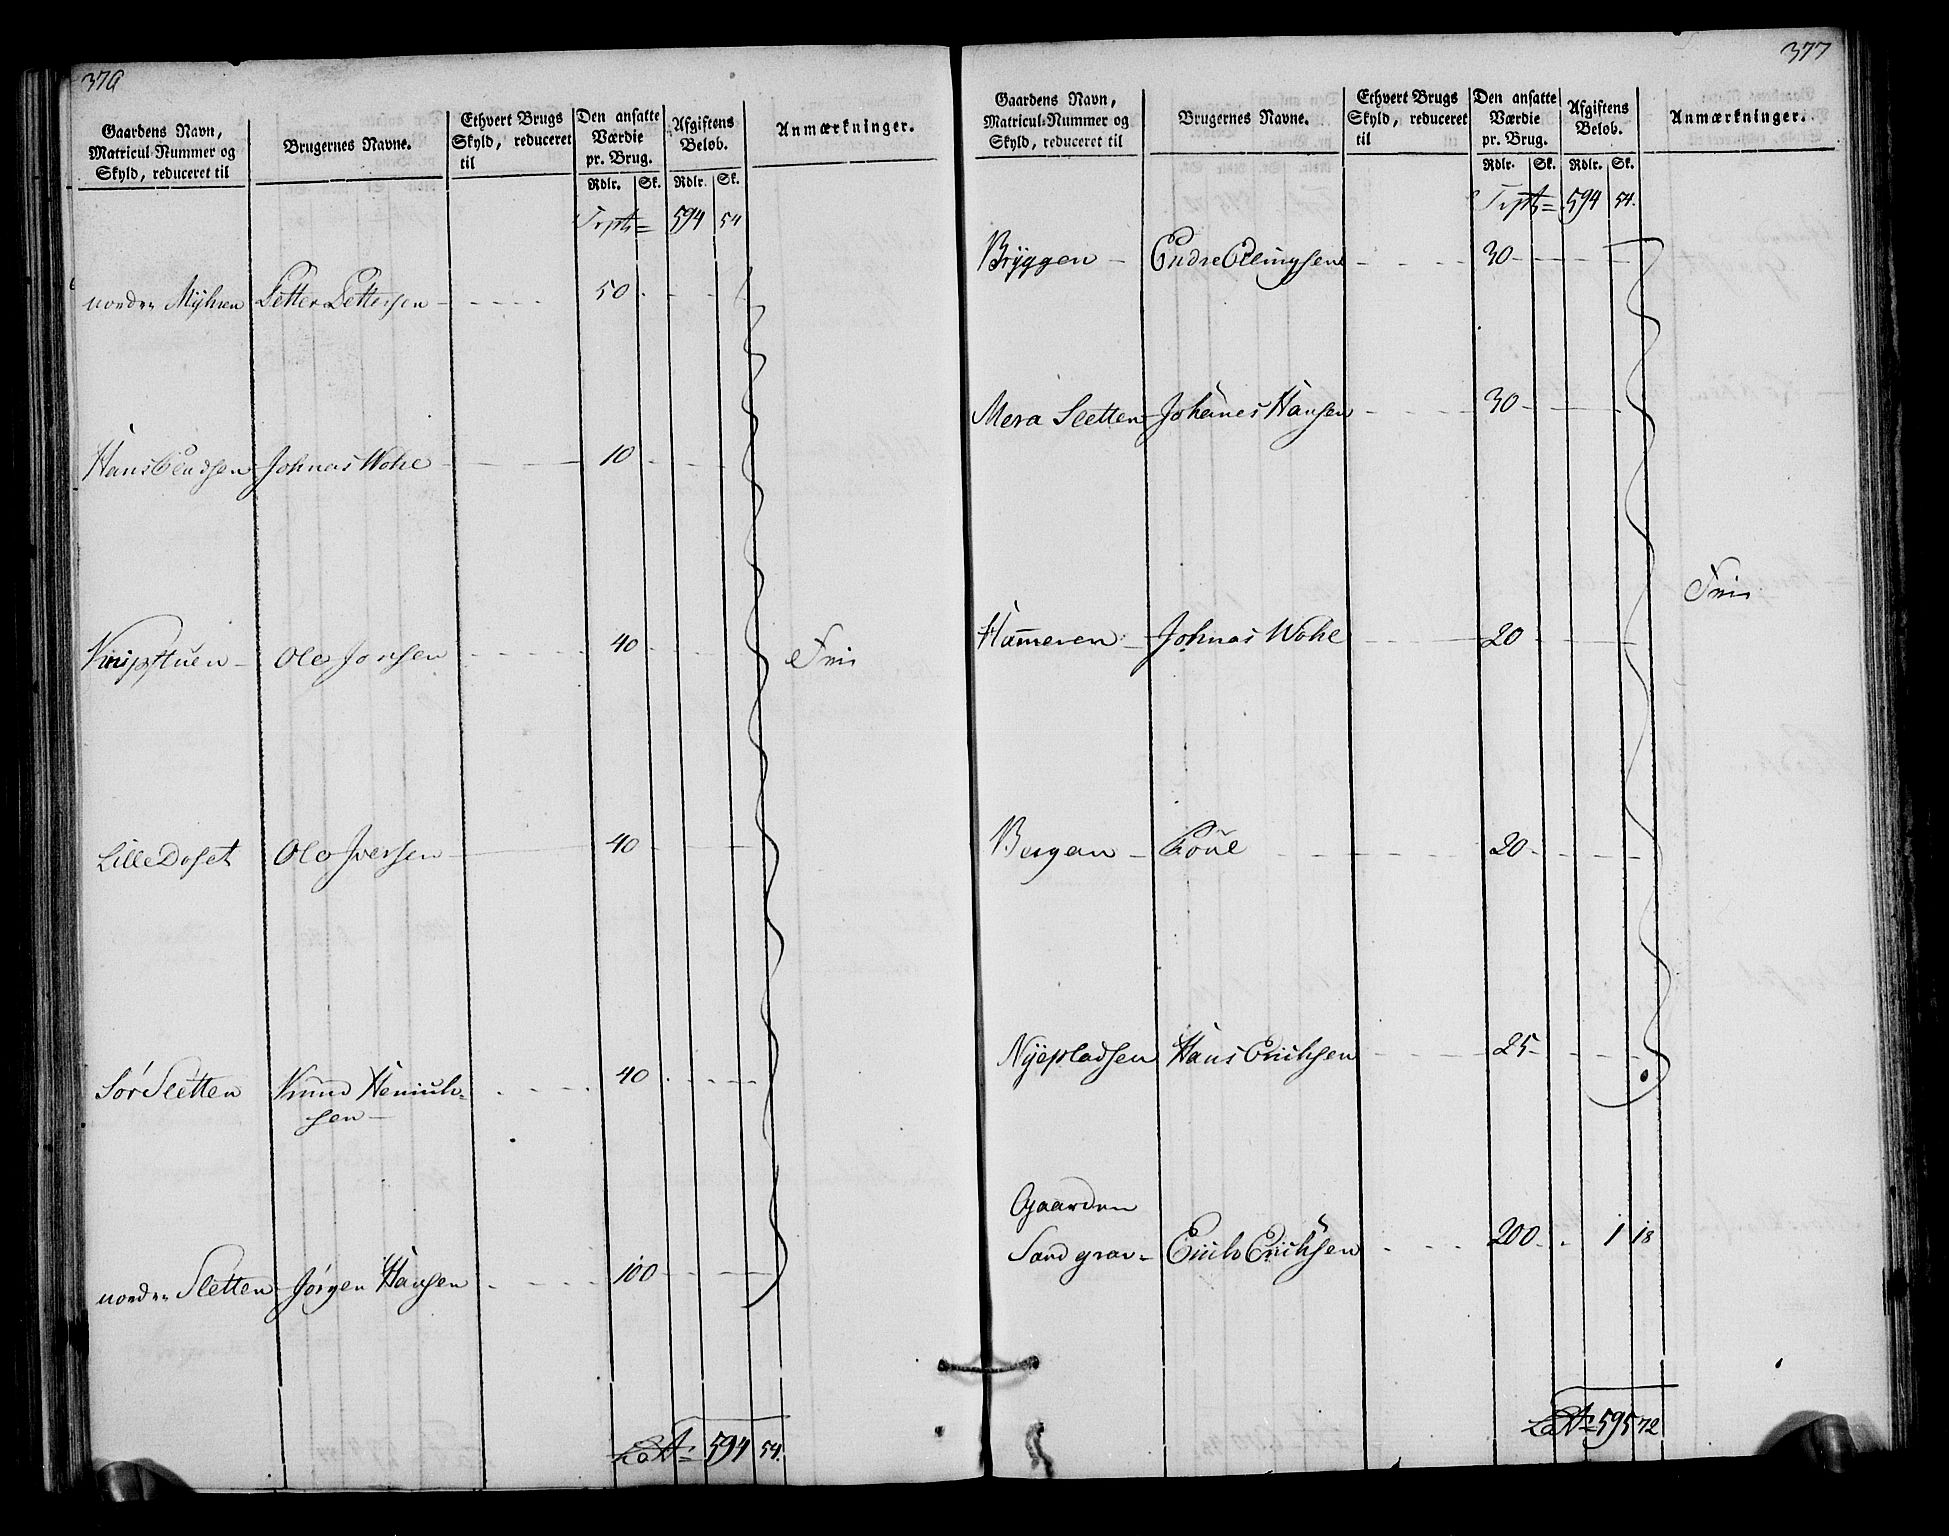 376
Gaardens Navn, Matricul-Nummer og Skyld, reduceret til
Brugernes Navne.
Ethvert Brugs Skyld, reduceret til
Den ansatte Værdie pr. Brug.
Afgiftens Beløb.
Anmærkninger.
Rdlr. Sk. Rdlr. Sk.
Trpt = 594 54
nordre Myhren Petter Pettersen 50
Johnas Wohl 10
Ole Jonsen 40 Frie
Lille Ole Iversen 40
Sør Sletten Knud Henrich=
sen 40
nordre Sletten Jørgen Hansen 100
Lat = 594 54.
377
Gaardens Navn, Matricul-Nummer og Skyld, reduceret til
Brugernes Navne.
Ethvert Brugs Skyld, reduceret til
Den ansatte Værdie pr. Brug.
Afgiftens Beløb.
Anmærkninger.
Rdlr. Sk. Rdlr. Sk.
Trpt = 594 54.
Bryggen Endre 30
Sletten Johanes Hansen 30
Frie
Hammeren Johnas Wohl 20
Bergan Poul 20
Nyepladsen Hans Erichsen 25
Gaarden
Sandgrav Erich Erichsen 200 1 18
Lat = 595 72